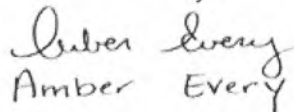 Amber Every
Amber Every